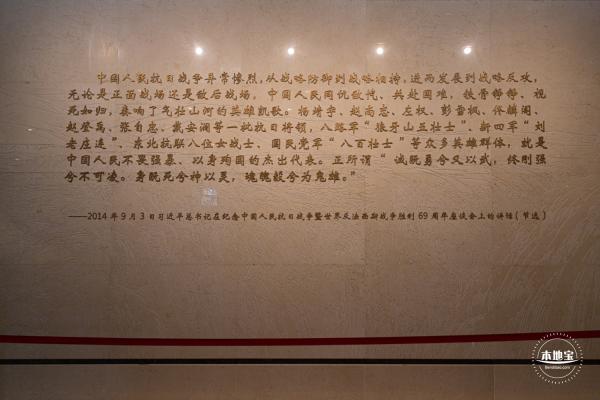 中国人民抗日战争异常惨烈，从战略防御到战略相持，进而发展到战略反攻，
无论是正面战场还是敌后战场，中国人民同仇敌忾、共赴国难，铁骨铮铮、视
死如归，奏响了气壮山河的英雄凯歌。杨靖宇、赵尚志、左权、彭雪枫、佟麟阁、
赵登禹、张自忠、戴安澜等一批抗日将领，八路军“狼牙山五壮士”、新四军“刘
老庄连”、东北抗联八位女战士、国民党军“八百壮士”等众多英雄群体，就是
中国人民不畏强暴、以身殉国的杰出代表。正所谓“诚既勇兮又以武，终刚强
兮不可凌。身既死兮神以灵，魂魄毅兮为鬼雄。”
——2014年9月3日习近平总书记在纪念中国人民抗日战争暨世界反法西斯战争胜利69周年座谈会上的讲话（节选）
本地宝
Bendibao.com